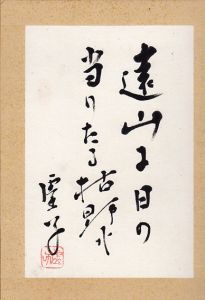 遠山に日の
当りたる枯野哉
虚子